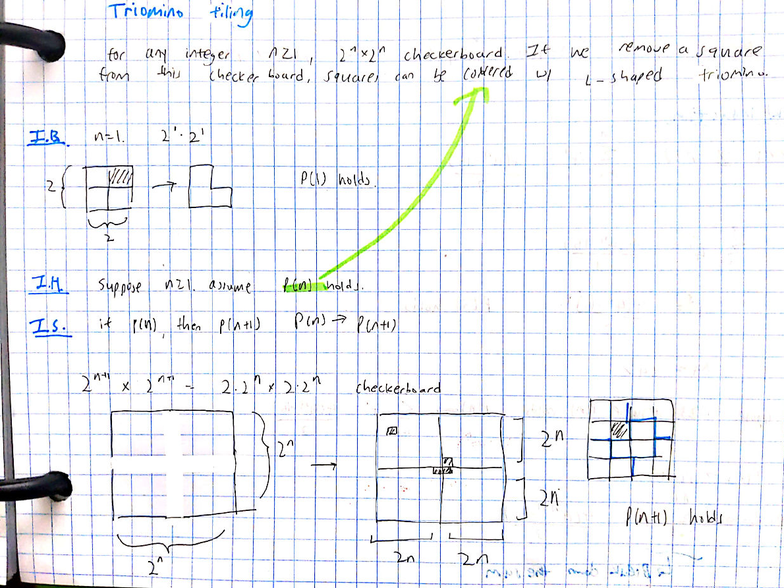 Triomino tiling
for any integer n≥1, 2ⁿ×2ⁿ checkerboard. If we remove a square
from this checkerboard, squares can be covered w/ L-shaped triomino.
I.B. n=1. 2¹·2¹
2
2
P(1) holds.
I.H. Suppose n≥1. assume P(n) holds.
I.S. if P(n), then P(n+1) P(n) → P(n+1)
2ⁿ⁺¹ × 2ⁿ⁺¹ = 2·2ⁿ × 2·2ⁿ checkerboard
2ⁿ
2ⁿ
2n
2n
2n
2n
P(n+1) holds